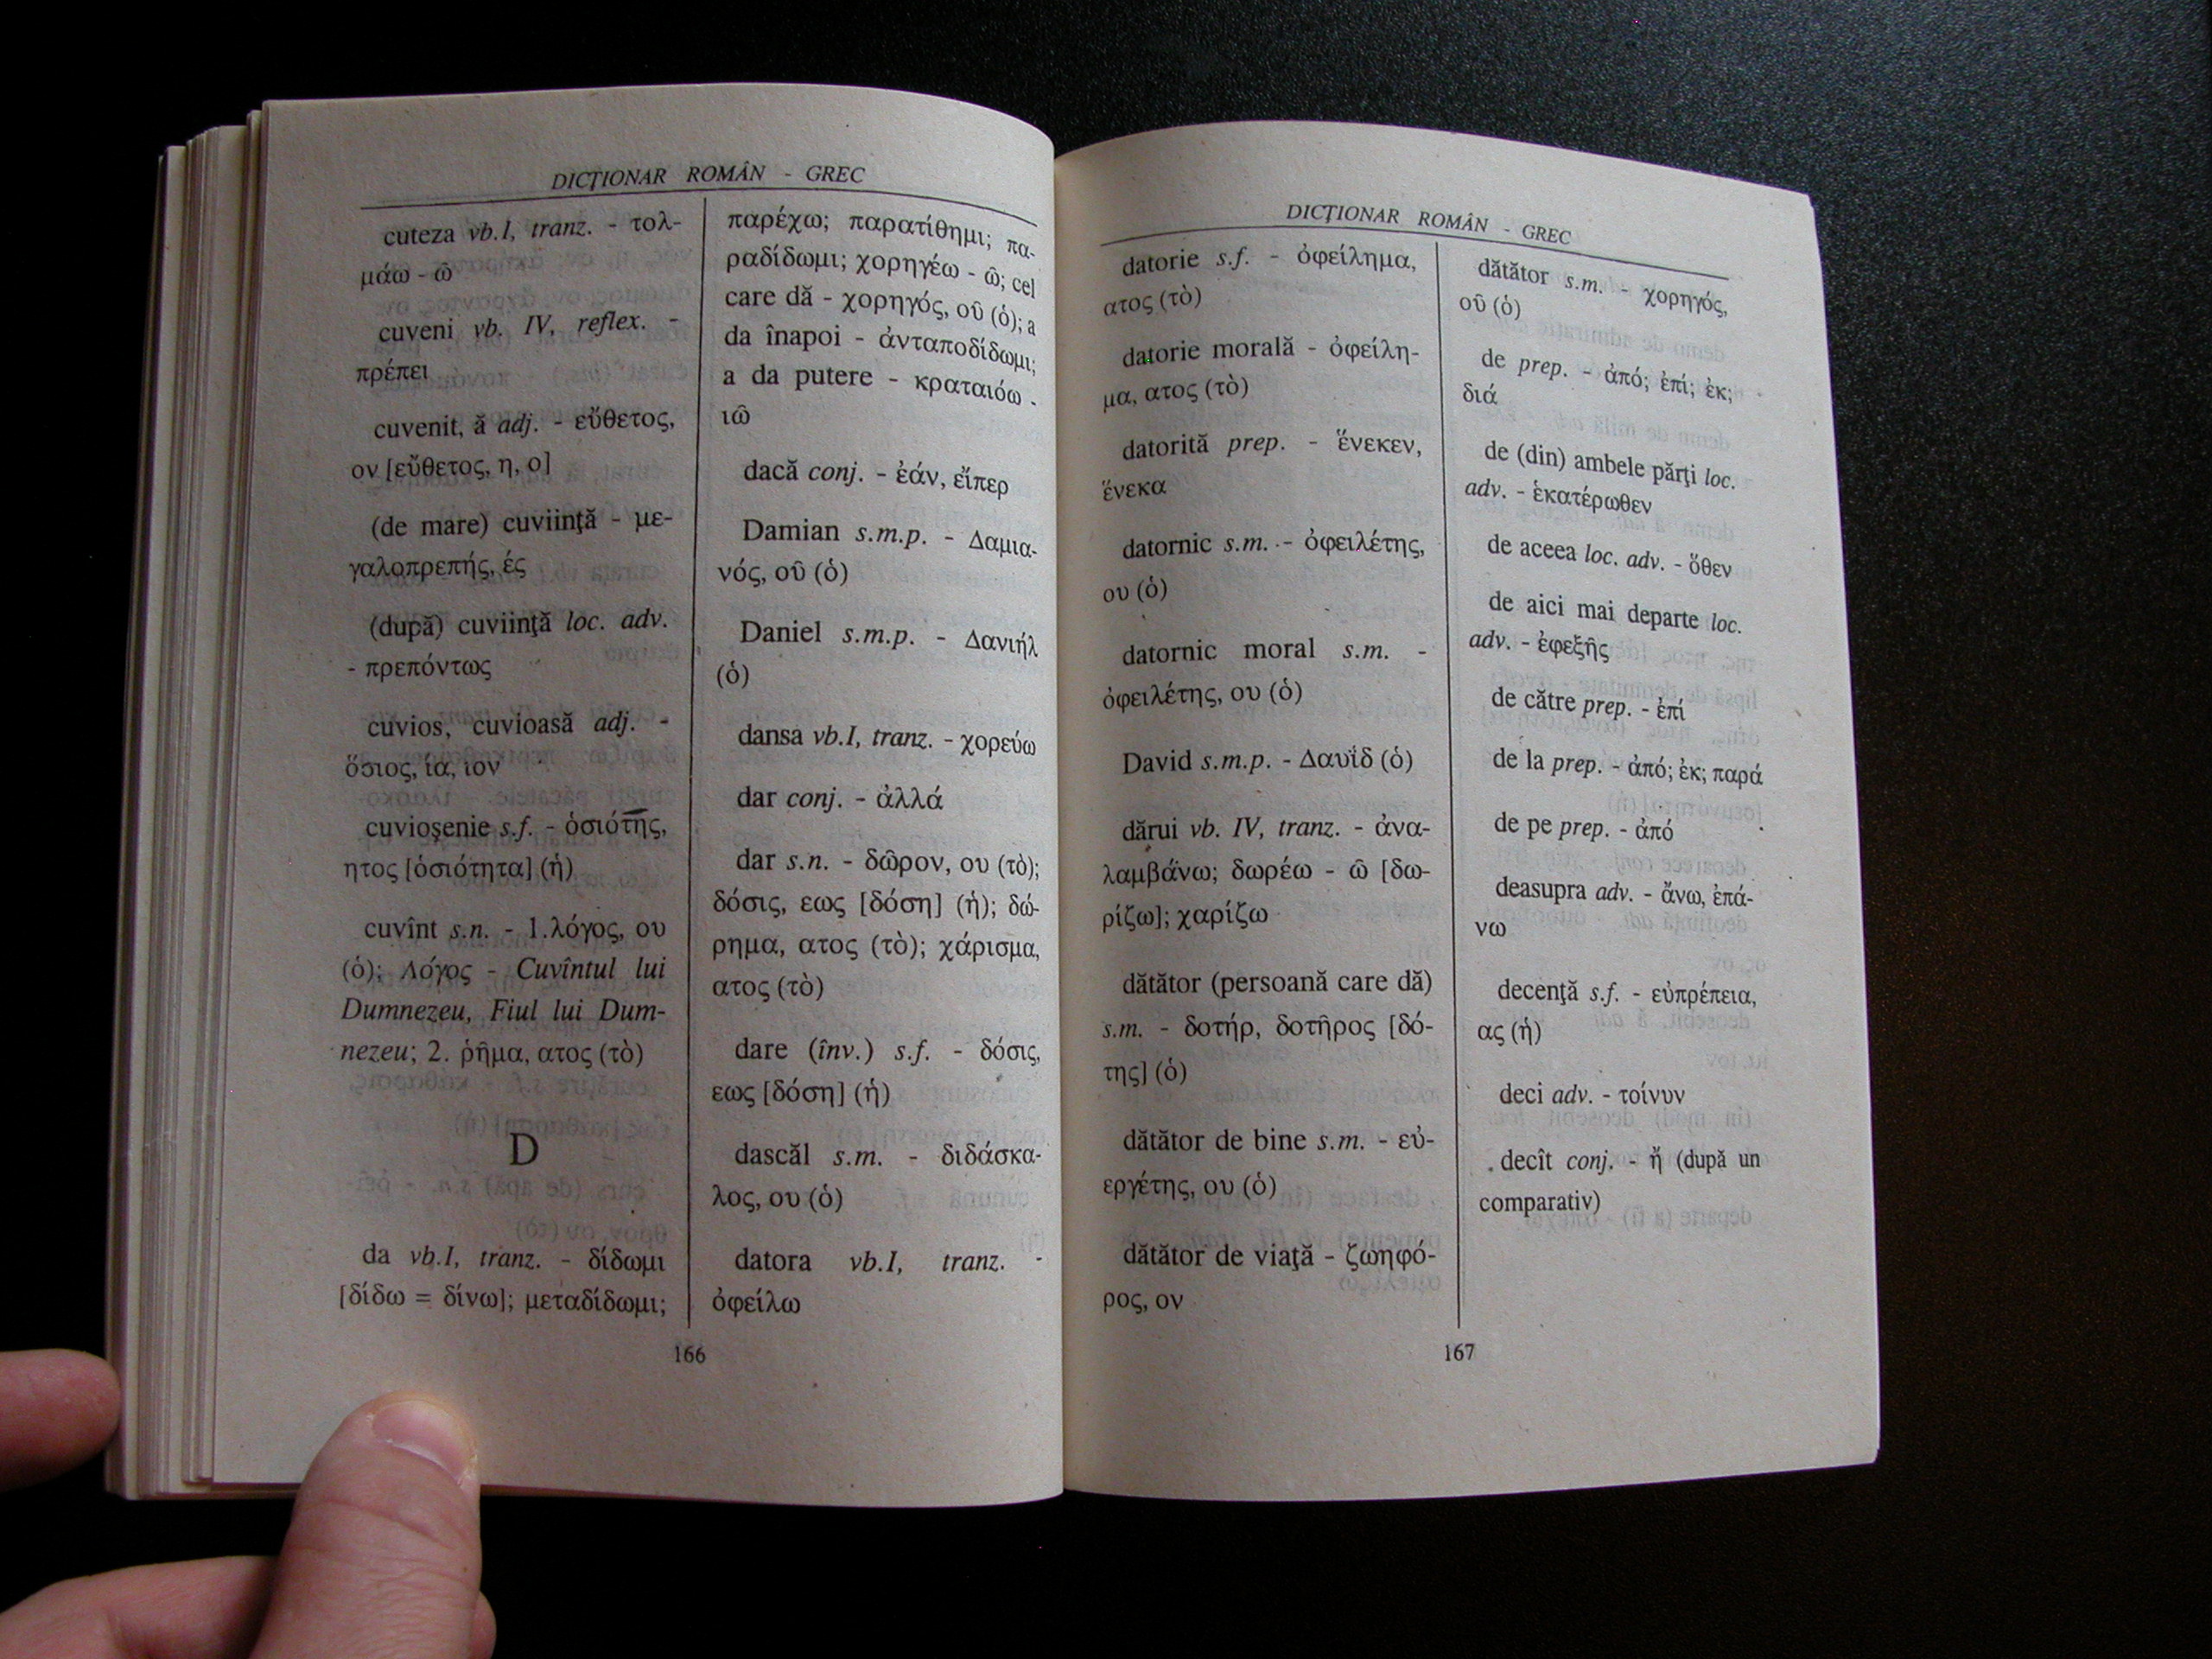 DICŢIONAR ROMÂN - GREC
cuteza vb.I, tranz. - τολ-
μάω - ῶ
cuveni vb. IV, reflex. -
πρέπει
cuvenit, ă adj. - εὔθετος,
ον [εὔθετος, η, ο]
(de mare) cuviinţă - με-
γαλοπρεπής, ές
(după) cuviinţă loc. adv.
- πρεπόντως
cuvios, cuvioasă adj. -
ὅσιος, ία, ιον
cuvioşenie s.f. - ὁσιότης,
ητος [ὁσιότητα] (ἡ)
cuvînt s.n. - 1.λόγος, ου
(ὁ); Λόγος - Cuvîntul lui
Dumnezeu, Fiul lui Dum-
nezeu; 2. ῥῆμα, ατος (τὸ)
D
da vb.I, tranz. - δίδωμι
[δίδω = δίνω]; μεταδίδωμι;
παρέχω; παρατίθημι; πα-
ραδίδωμι; χορηγέω - ῶ; cel
care dă - χορηγός, οῦ (ὁ); a
da înapoi - ἀνταποδίδωμι;
a da putere - κραταιόω -
ιῶ
dacă conj. - ἐάν, εἴπερ
Damian s.m.p. - Δαμια-
νός, οῦ (ὁ)
Daniel s.m.p. - Δανιήλ
(ὁ)
dansa vb.I, tranz. - χορεύω
dar conj. - ἀλλά
dar s.n. - δῶρον, ου (τὸ);
δόσις, εως [δόση] (ἡ); δώ-
ρημα, ατος (τὸ); χάρισμα,
ατος (τὸ)
dare (înv.) s.f. - δόσις,
εως [δόση] (ἡ)
dascăl s.m. - διδάσκα-
λος, ου (ὁ)
datora vb.I, tranz. -
ὀφείλω
166
DICŢIONAR ROMÂN - GREC
datorie s.f. - ὀφείλημα,
ατος (τὸ)
datorie morală - ὀφείλη-
μα, ατος (τὸ)
datorită prep. - ἕνεκεν,
ἕνεκα
datornic s.m. - ὀφειλέτης,
ου (ὁ)
datornic moral s.m. -
ὀφειλέτης, ου (ὁ)
David s.m.p. - Δαυΐδ (ὁ)
dărui vb. IV, tranz. - ἀνα-
λαμβάνω; δωρέω - ῶ [δω-
ρίζω]; χαρίζω
dătător (persoană care dă)
s.m. - δοτήρ, δοτῆρος [δό-
της] (ὁ)
dătător de bine s.m. - εὐ-
εργέτης, ου (ὁ)
dătător de viaţă - ζωηφό-
ρος, ον
dătător s.m. - χορηγός,
οῦ (ὁ)
de prep. - ἀπό; ἐπί; ἐκ;
διά
de (din) ambele părţi loc.
adv. - ἑκατέρωθεν
de aceea loc. adv. - ὅθεν
de aici mai departe loc.
adv. - ἐφεξῆς
de către prep. - ἐπί
de la prep. - ἀπό; ἐκ; παρά
de pe prep. - ἀπό
deasupra adv. - ἄνω, ἐπά-
νω
decenţă s.f. - εὐπρέπεια,
ας (ἡ)
deci adv. - τοίνυν
decît conj. - ἤ (după un
comparativ)
167